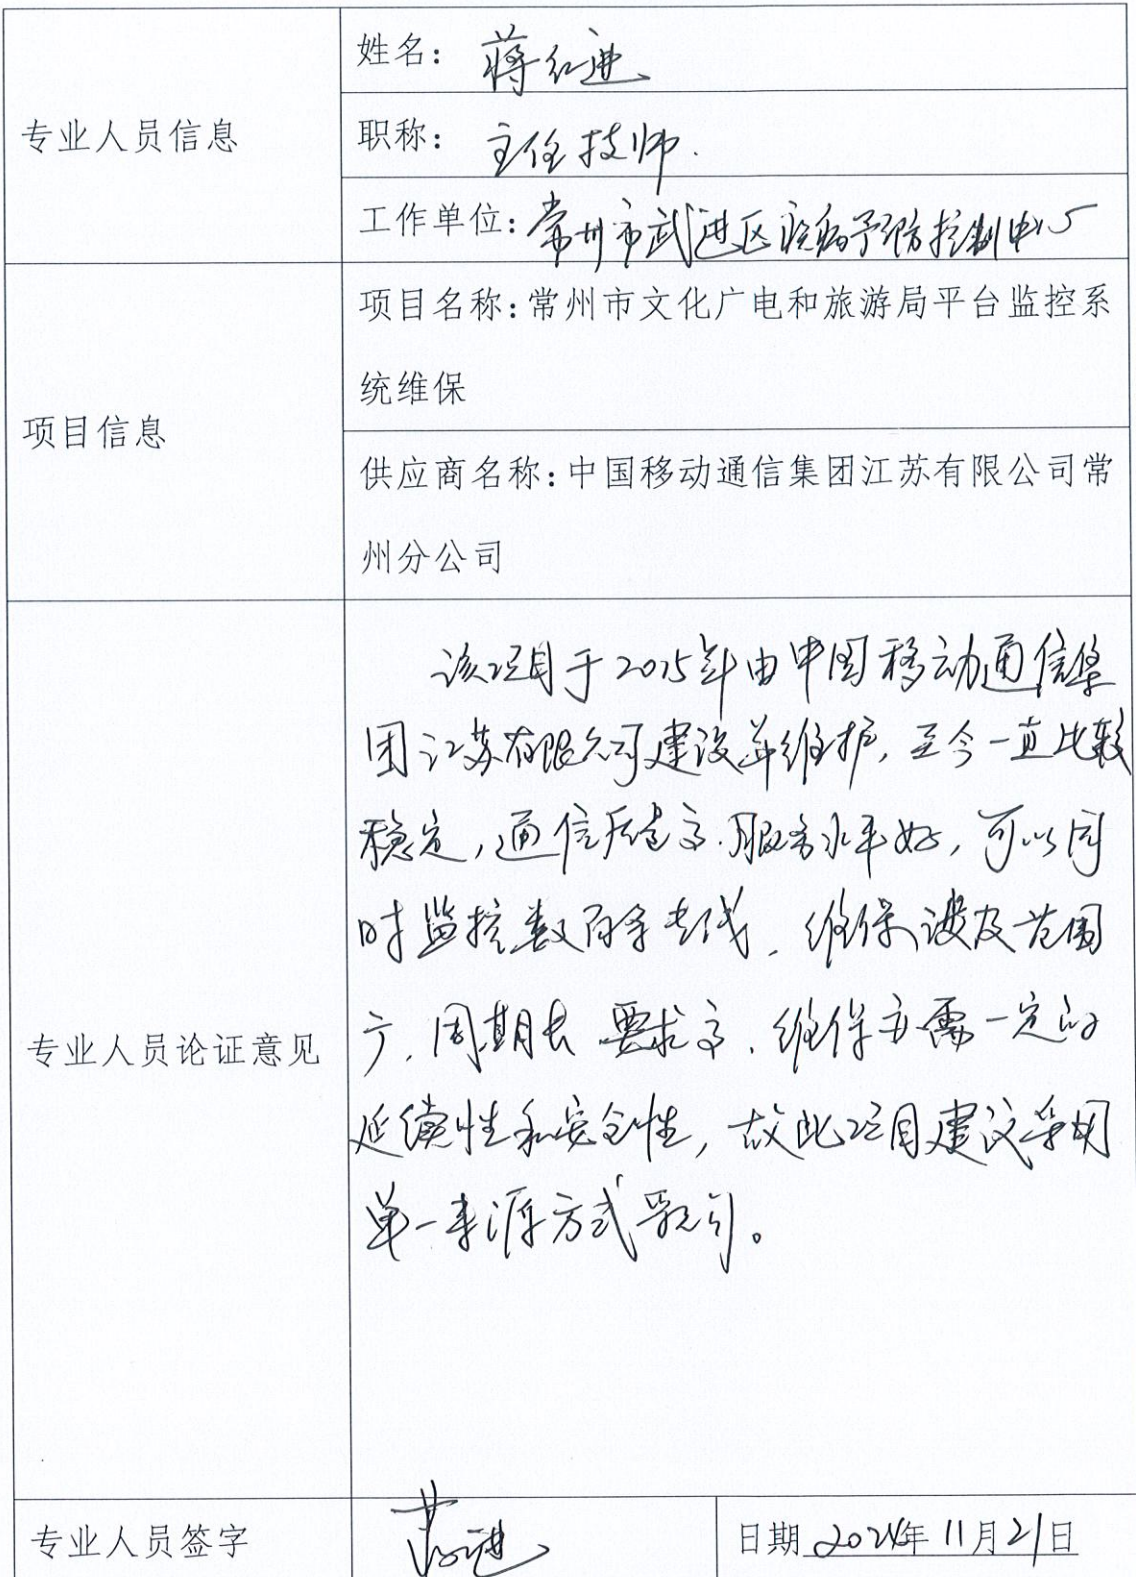 专业人员信息
姓名：蒋红进
职称：主任技师.
工作单位：常州市武进区疾病予防控制中心
项目信息
项目名称：常州市文化广电和旅游局平台监控系
统维保
供应商名称：中国移动通信集团江苏有限公司常
州分公司
专业人员论证意见
该项目于2015年由中国移动通信集
团江苏有限公司建设并维护，至今一直比较
稳定，通信质量高.服务水平好，可以同
时监控数百条专线，维保涉及范围
广，周期长 要求高，维保亦需一定的
延续性和安全性，故此项目建议采用
单一来源方式
专业人员签字
日期 2024年11月21日